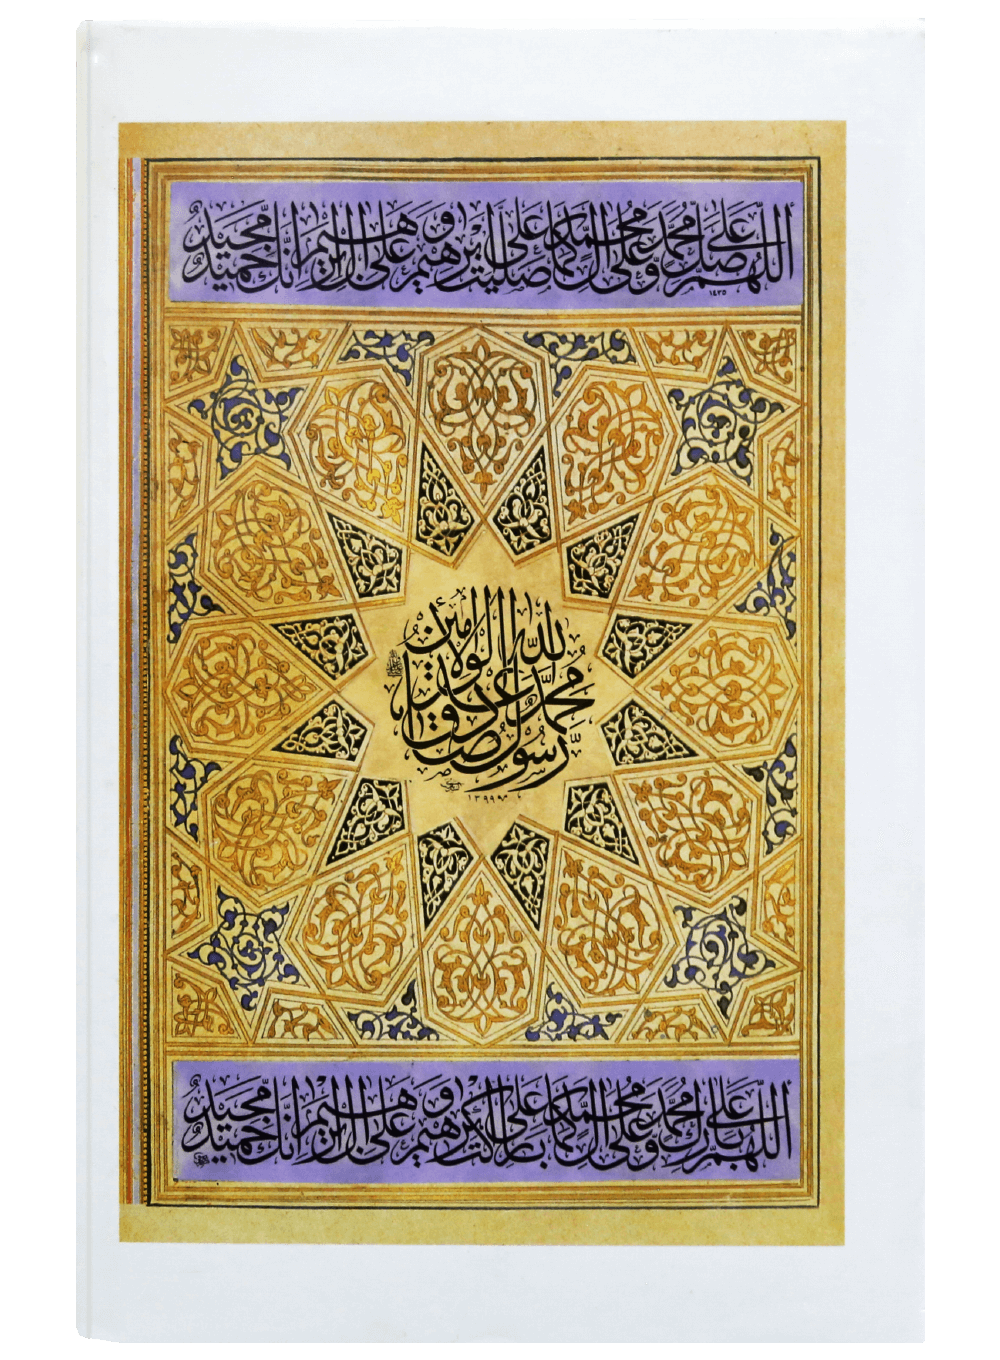 اللهم صل على محمد وعلى ال محمد كما صليت على ابرهيم وعلى ال ابرهيم انك حميد مجيد
١٤٣٥
محمد رسول الله صادق الوعد الأمين
١٣٩٩
اللهم بارك على محمد وعلى ال محمد كما باركت على ابرهيم وعلى ال ابرهيم انك حميد مجيد